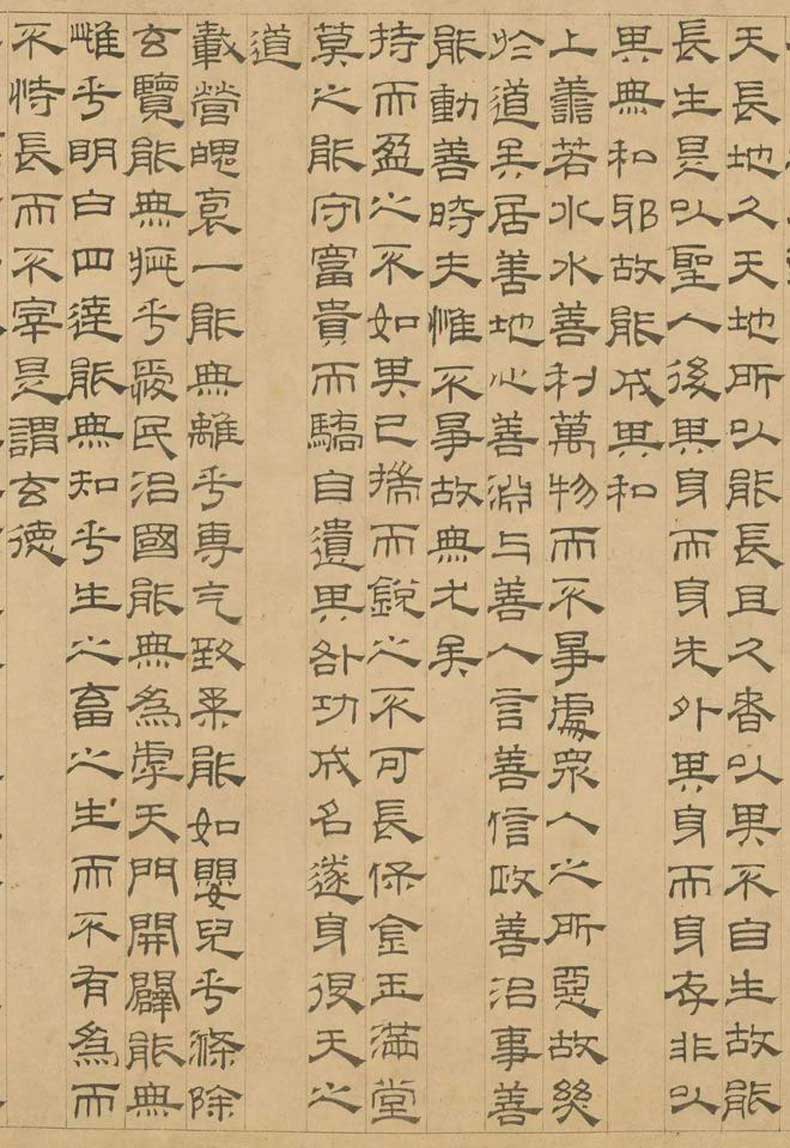 天長地久天地所以能長且久者以其不自生故能
長生是以聖人後其身而身先外其身而身存非以
其無私邪故能成其私
上善若水水善利萬物而不爭處眾人之所惡故幾
於道矣居善地心善淵与善人言善信政善治事善
能動善時夫惟不爭故無尤矣
持而盈之不如其已揣而銳之不可長保金玉滿堂
莫之能守富貴而驕自遺其咎功成名遂身退天之
道
載營魄袌一能無離乎專气致柔能如嬰兒乎滌除
玄覽能無疵乎愛民治國能無為虖天門開闢能無
雌乎明白四達能無知乎生之畜之生而不有為而
不恃長而不宰是謂玄德